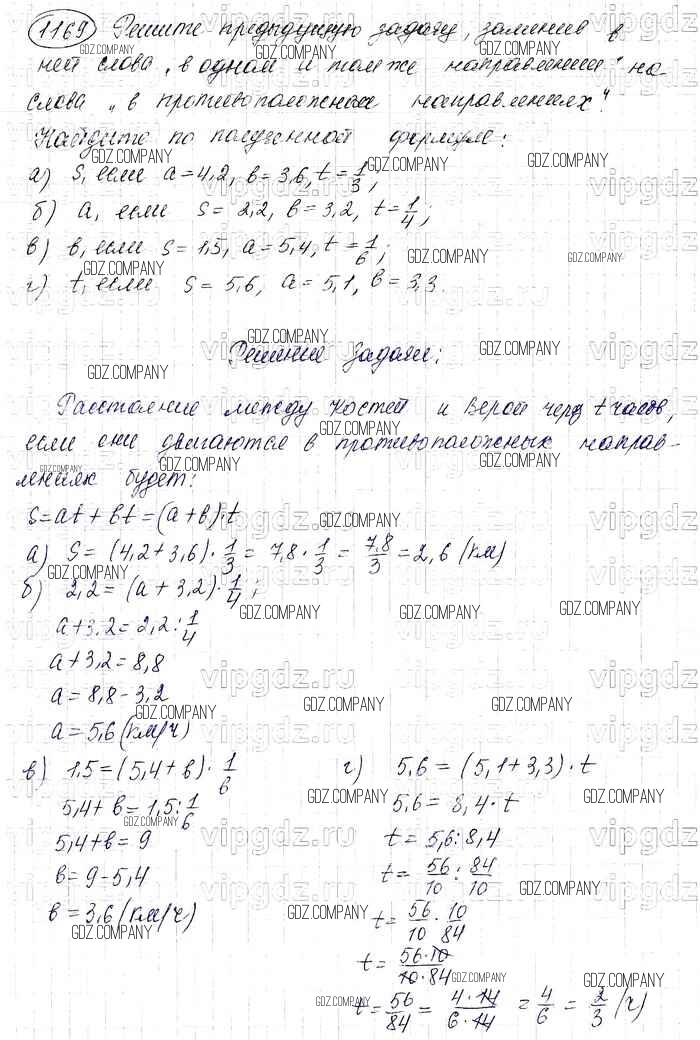 1169 Решите предыдущую задачу, заменив в
ней слова „в одном и том же направлении" на
слова „в противоположных направлениях".
Найдите по полученной формуле:
а) S, если a=4,2, b=3,6, t=1/3;
б) a, если S=2,2, b=3,2, t=1/4;
в) b, если S=1,5, a=5,4, t=1/6;
г) t, если S=5,6, a=5,1, b=3,3.
Решение задачи:
Расстояние между Костей и Верой через t часов,
если они двигаются в противоположных направ-
лениях будет:
S=at+bt=(a+b)·t
а) S=(4,2+3,6)·1/3=7,8·1/3=7,8/3=2,6 (км)
б) 2,2=(a+3,2)·1/4;
a+3,2=2,2:1/4
a+3,2=8,8
a=8,8-3,2
a=5,6 (км/ч)
в) 1,5=(5,4+b)·1/6
5,4+b=1,5:1/6
5,4+b=9
b=9-5,4
b=3,6 (км/ч)
г) 5,6=(5,1+3,3)·t
5,6=8,4·t
t=5,6:8,4
t=56/10:84/10
t=56/10·10/84
t=56·10/10·84
t=56/84=4·14/6·14=4/6=2/3 (ч)
GDZ.COMPANY
vipgdz.ru